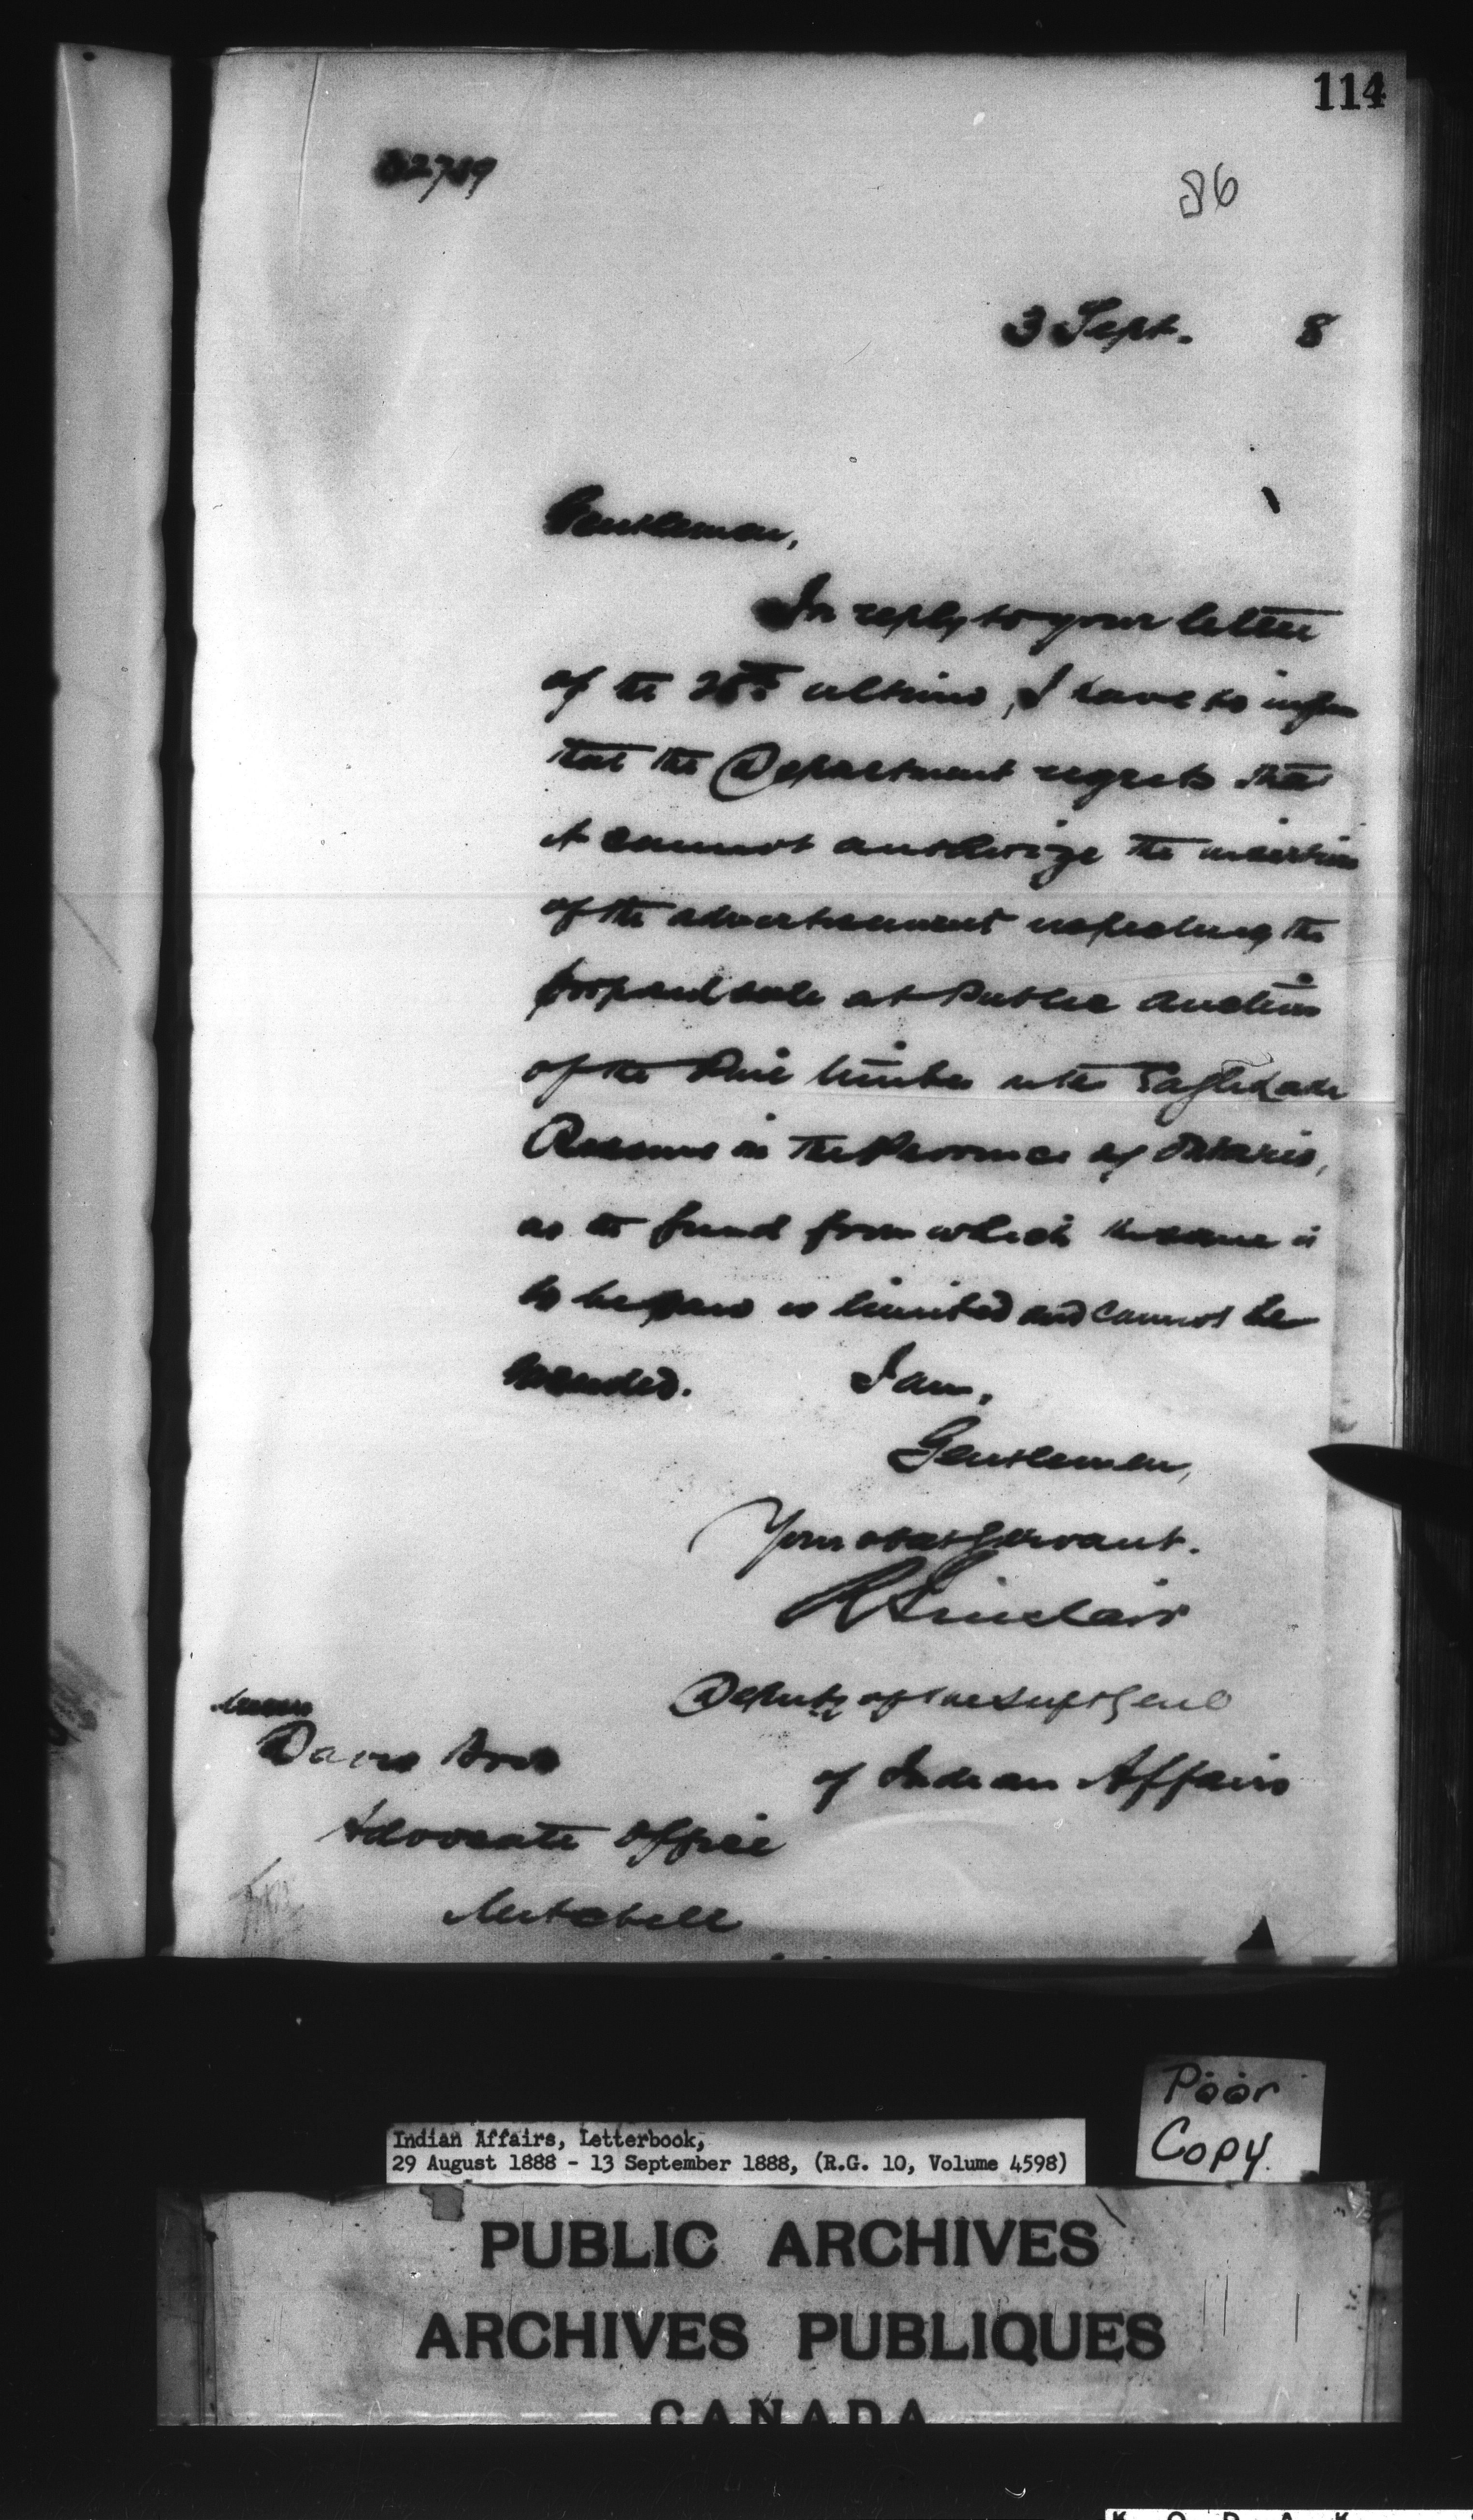 114
86
3 Sept. 8
Gentlemen,
In reply to your letter
of the ultimo, I have to inform
that the Department regrets that
it cannot authorize the insertion
of the advertisement respecting the
proposed sale at Public Auction
of the Pine timber on the Eagle Lake
Reserve in the Province of Ontario,
as the fund from which the same is
to be paid is limited and cannot be
exceeded. I am,
Gentlemen,
Your obdt Servant.
R Sinclair
Deputy of the Supt Genl
of Indian Affairs
Messrs
Davis Bros
Advocate Office
Mitchell
Poor
Copy.
Indian Affairs, Letterbook,
29 August 1888 - 13 September 1888, (R.G. 10, Volume 4598)
PUBLIC ARCHIVES
ARCHIVES PUBLIQUES
CANADA